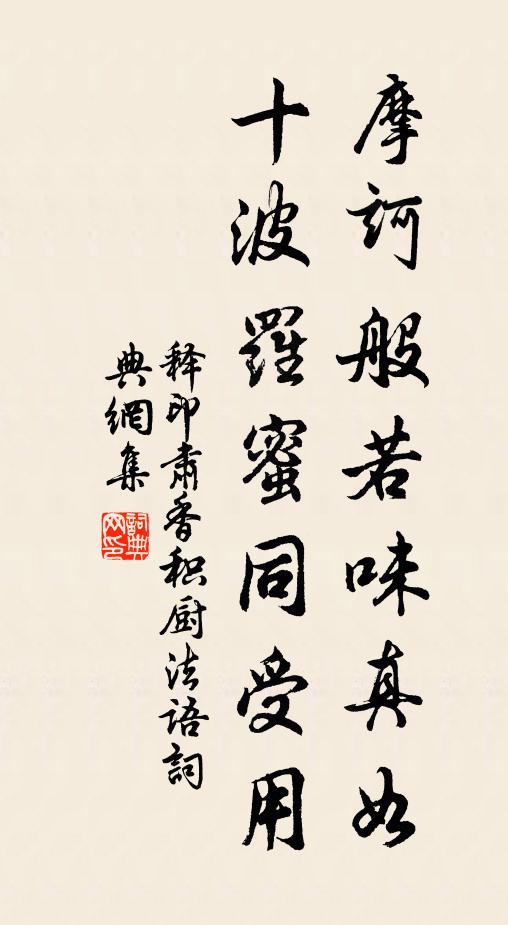 摩訶般若味真如
十波羅蜜同受用
释印肃香积厨法语詞
典網集
詞典网印